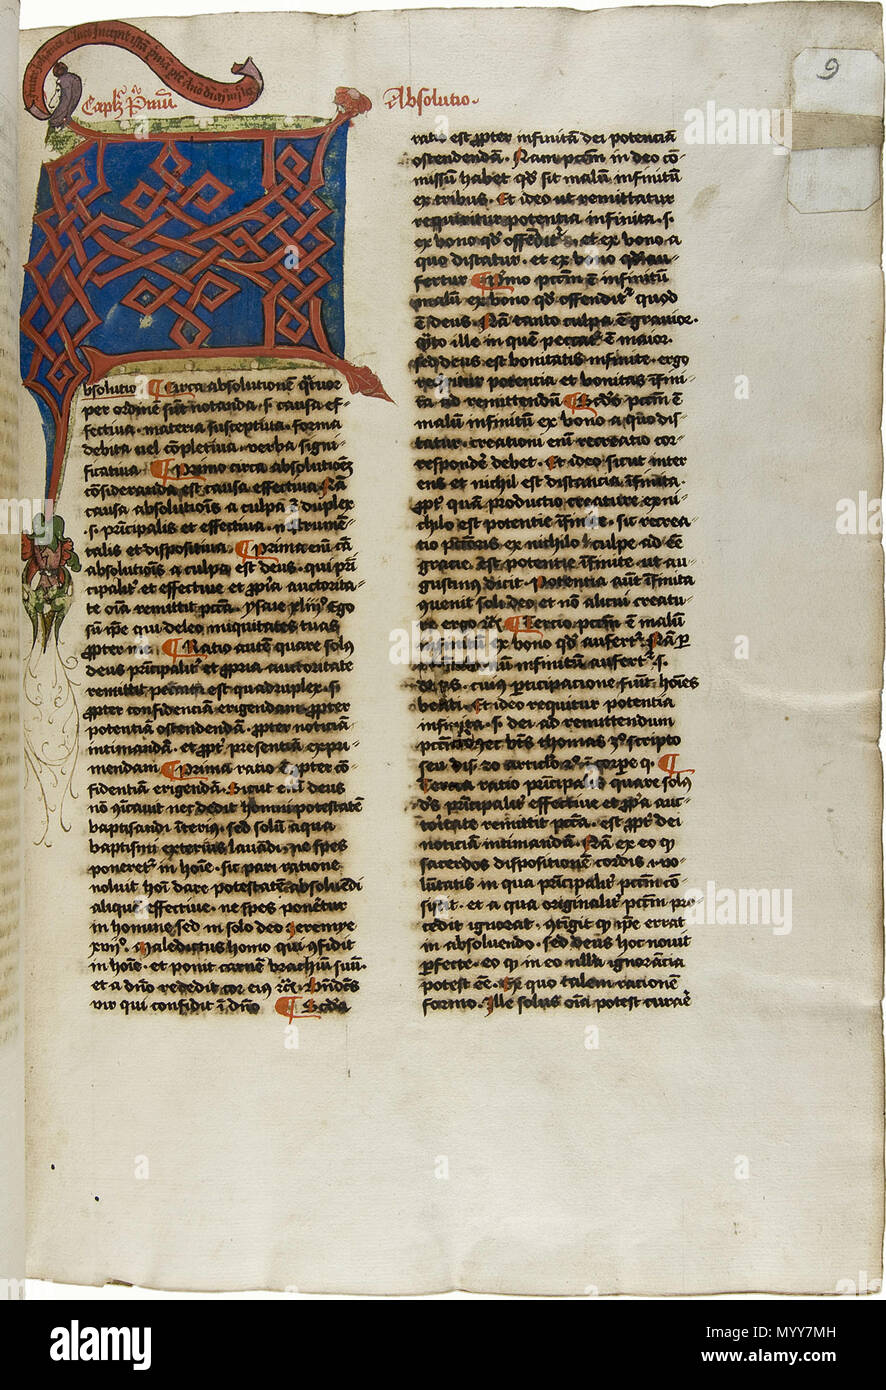 Capłm Primū
Absolutio·
9
bsolutio ¶ Circa absolutionē qtuor
per ordinē sūt notanda · s· causa ef-
fectiua · materia susceptiua · forma
debita uel cōpletiua · verba signi-
ficatiua ¶ Primo circa absolutionē
cōsideranda est causa effectiua Nā
causa absolutiōis a culpa ē duplex
·s· prīcipalis et effectiua · instrumē-
talis et dispositiua ¶ Prima enī cā
absolutiōis a culpa est deus · qui prī
cipalit̄ et effectiue et ꝓpria auctorita-
te oīa remittit pccā · ysaye xliii° Ego
sū ip̄e qui deleo iniquitates tuas
ꝓpter me ¶ Ratio autē quare solus
deus prīcipalit̄ et ꝓpria auctoritate
remittit peccata est quadruplex · s·
ꝓpter confidenciam erigendam · ꝓpter
potentiā ostendendā · ꝓpter noticiā
intimandā · et ꝓpt̄ presentiā expri-
mendam ¶ Prima ratio ē ꝓpter cō-
fidentiā erigendā · Sicut enī deus
nō cōicauit nec dedit homini potestatē
baptisandi īterius · sed solū aqua
baptismi exterius lauādi · ne spes
poneret̄ in hoīe · sic pari ratione
noluit hoī dare potestatē absoluēdi
aliquē effectiue · ne spes ponetur
in homine sed in solo deo Jeremye
xvii° · Maledictus homo qui cōfidit
in hoīe · et ponit carnē brachiū suū ·
et a dn̄o recedit cor eius rc̄ · Bn̄dc̄us
vir qui confidit ī dn̄o ¶ Scd̄a
ratio est ꝓpter infinitā dei potenciā
ostendendā · Nam pccm̄ in deo cō-
missū habet qd̄ sit malū infinitū
ex tribus · Et ideo ut remittatur
requiritur potentia infinita · s·
ex bono qd̄ offendit̄ · et ex bono a
quo distatur · et ex bono qd̄ au-
fertur ¶ Primo pccm̄ ē infinitū
malū ex bono qd̄ offendit̄ quod
ē deus · Nā tanto culpa ē grauior ·
q̄to ille in quē peccat̄ ē maior ·
sed deus est bonitatis infinite · ergo
requiritur potencia et bonitas īfini-
ta ad remittendū ¶ Scd̄o pccm̄ ē
malū infinitū ex bono a quo dis-
tatur · creationi enī recreatio cor-
respondē debet · Et ideo sicut inter
ens et nichil est distancia īfinita ·
ꝓpt̄ quam productio creature ex ni-
chilo est potentie īfinite · sic recrea-
tio pctōris ex nichilo culpe ad eē
gracie · est potentie īfinite · ut au-
gustinus dicit · Potentia aūt īfinita
cōuenit soli deo et nō alicui creatu-
re ergo rc̄ ¶ Tercio pccm̄ ē malū
infinitū ex bono qd̄ aufert̄ · Nā p
bonum infinitum aufert̄ · s·
deus · cuius participacione fiūt hoīes
beati · Et ideo requiritur potentia
infinita · s· dei ad remittendum
pccm̄ · hec bt̄us thomas scripto
¶
Tercia ratio prīcipalis quare solus
ds̄ prīcipalit̄ effectiue et ꝓpria auc-
toritate remittit pccā · est ꝓpt̄ dei
noticiā intimandā · Nā ex eo q
sacerdos dispositionē cordis et uo-
lūtatis in qua prīcipalit̄ pccm̄ cō-
sistit · et a qua originalit̄ pccm̄ pro-
cedit ignorat · cōtigit q ip̄e errat
in absoluendo · sed deus hoc nouit
perfecte · eo q in eo nulla ignorācia
potest eē · Ex quo talem rationē
formo · Ille solus oīa potest curare
alamy
Image ID: MYY7MH
www.alamy.com